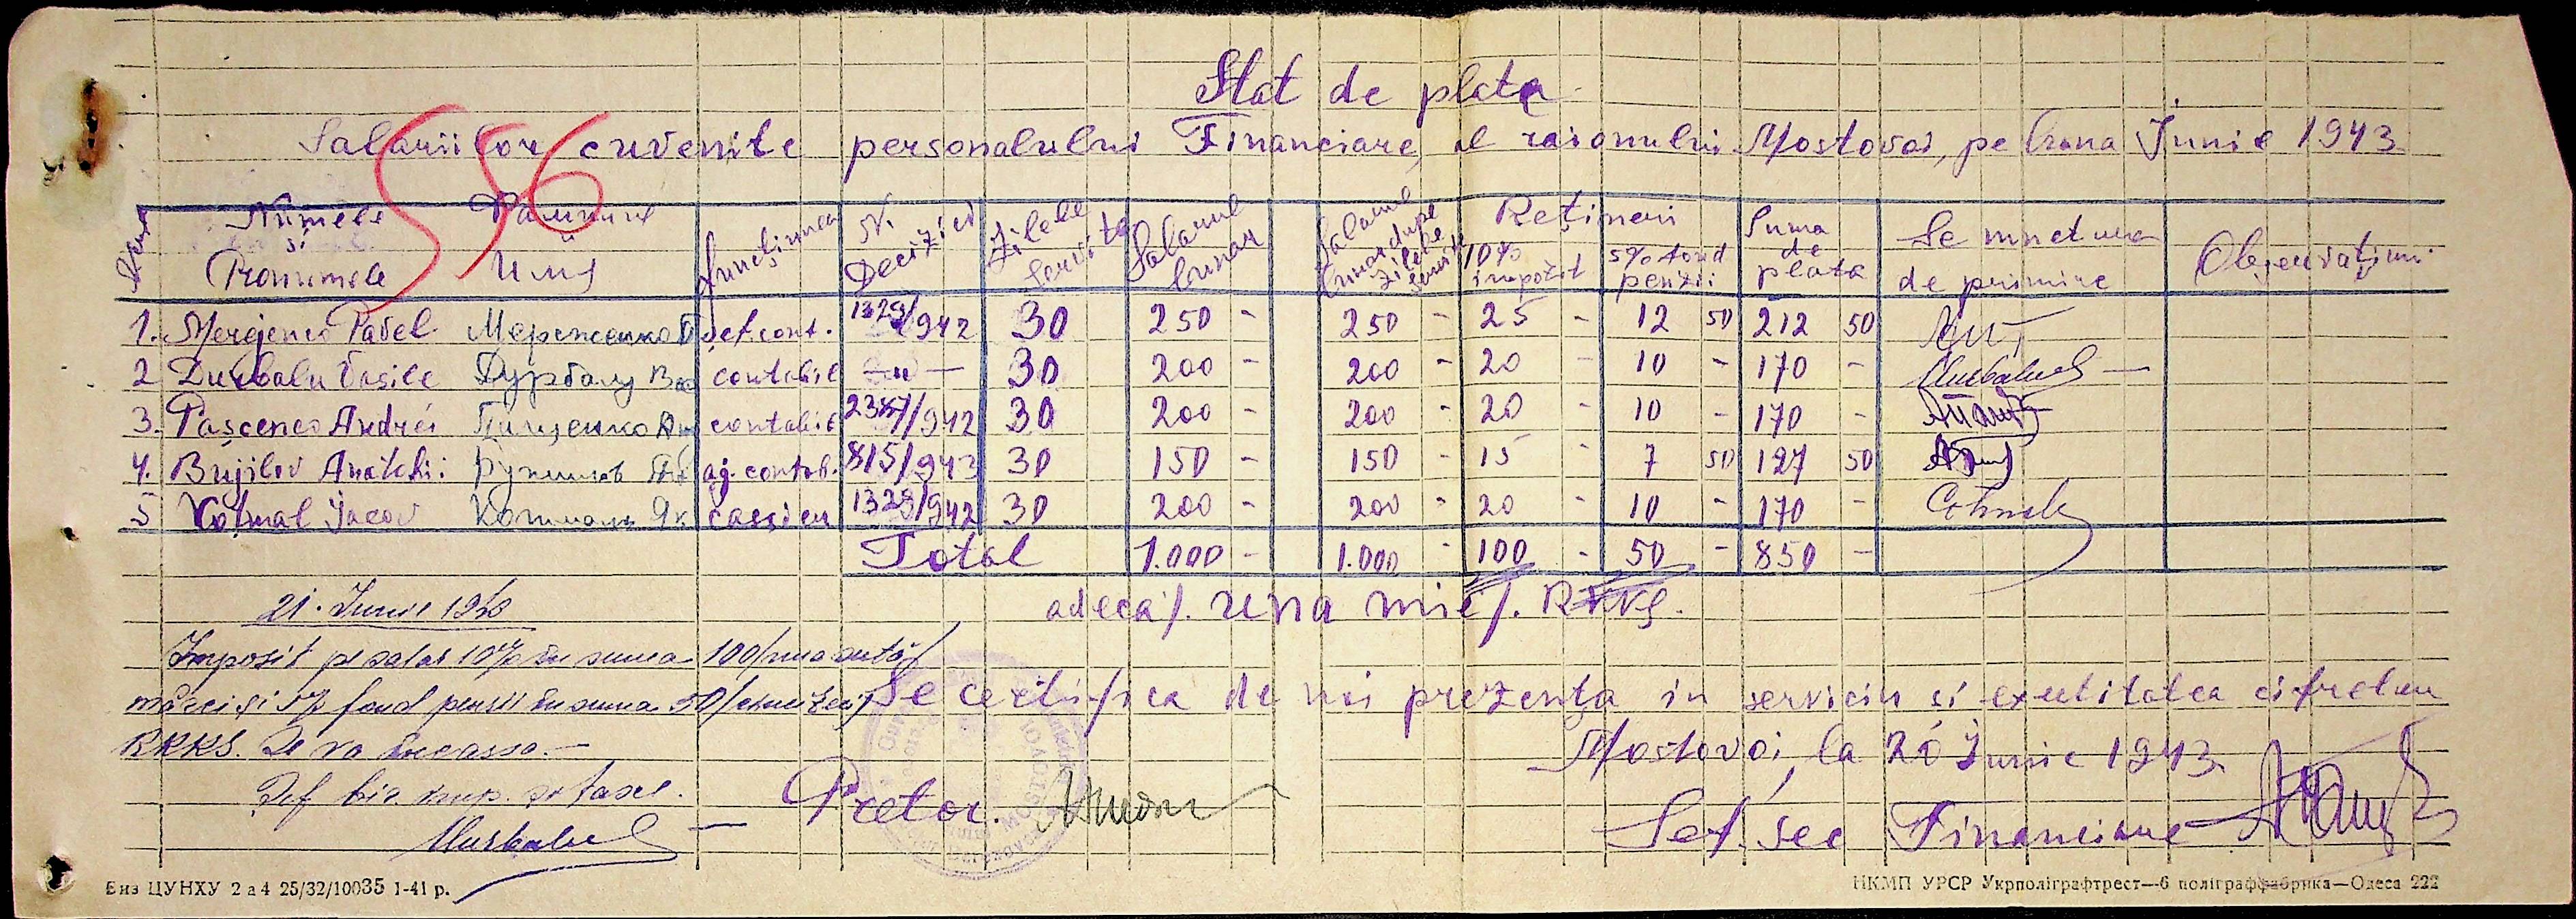 56
Stat de plata
Salariilor cuvenite personalului Financiare, al raionului Mostovoi, pe luna Junie 1943
Numele și Pronumele Фамилия Имя Funcțiunea N. Decizieі Zilele servite Salariul lunar Salariul lunar dupe zilele servite Rețineri 10% impozit 5% fond penzii Suma de plata Semnetura de primire Observațiuni
1. Merejenco Pavel Мереженко П șef. cont. 1329/942 30 250 - 250 - 25 - 12 50 212 50
2 Durbalu Vasile Дурбалу Вас contabil —"— 30 200 - 200 - 20 - 10 - 170 -
3. Pașcenco Andrei Пащенко Ан contabil 2387/942 30 200 - 200 - 20 - 10 - 170 -
4. Bujilov Anatolii Бужилов Ан aj. contab. 815/943 30 150 - 150 - 15 - 7 50 127 50
5 Coțmal Jacov Коцмаль Як cassieu 1328/942 30 200 - 200 - 20 - 10 - 170 -
Total 1.000 - 1.000 - 100 - 50 - 850 -
adeca/. una mie/. RKKS.
21. Iunie 1943
Imposit pe salar 10% în suma 100/una sută/
mărci și 5% fond pensii în suma 50/cinci zeci/
RKKS. Se va încassa.—
Șef bir. imp. și taxe.
Se certifica de noi prezența in serviciu si exectitatea cifrelor
Mostovoi, la 20 Junie 1943.
Pretor.
Șef. sec Financiare
Биз ЦУНХУ 2 а 4 25/32/10035 1-41 р.
НКМП УРСР Укрполіграфтрест—6 поліграффабрика—Одеса 222